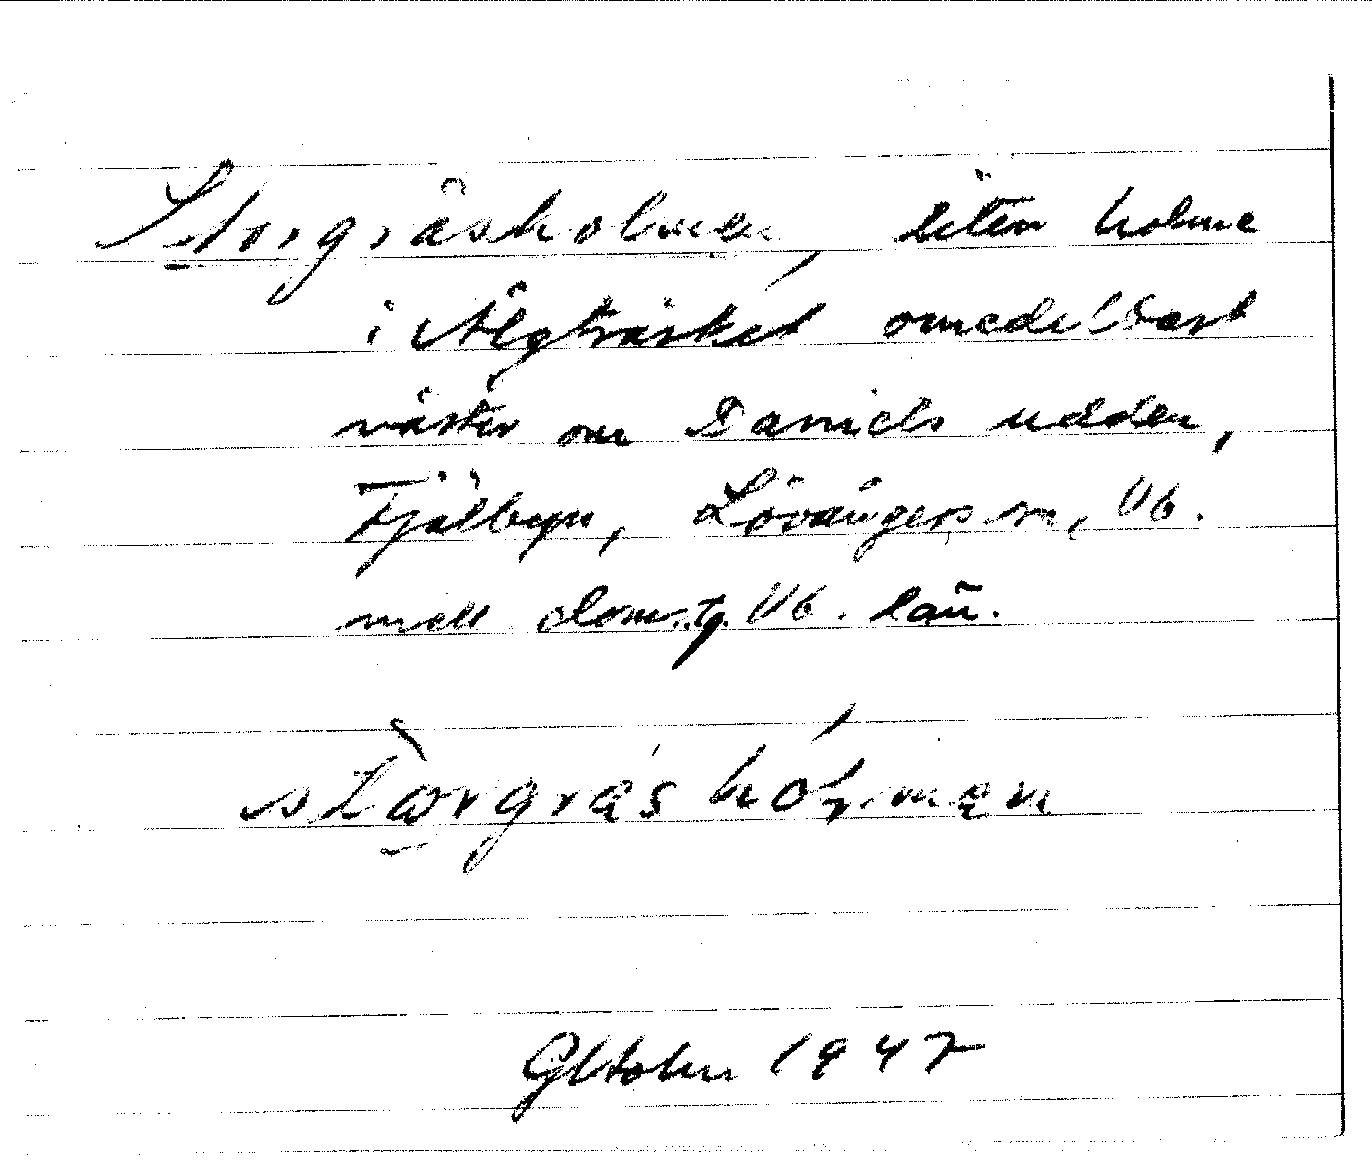 Storgräsholmen, liten holme
i Älgträsket omedelbart
väster om Daniels udden,
Fjälbyn, Lövångers sn, Vb.
mell dom.tg. Vb. län.
storgräs hólmen
1947